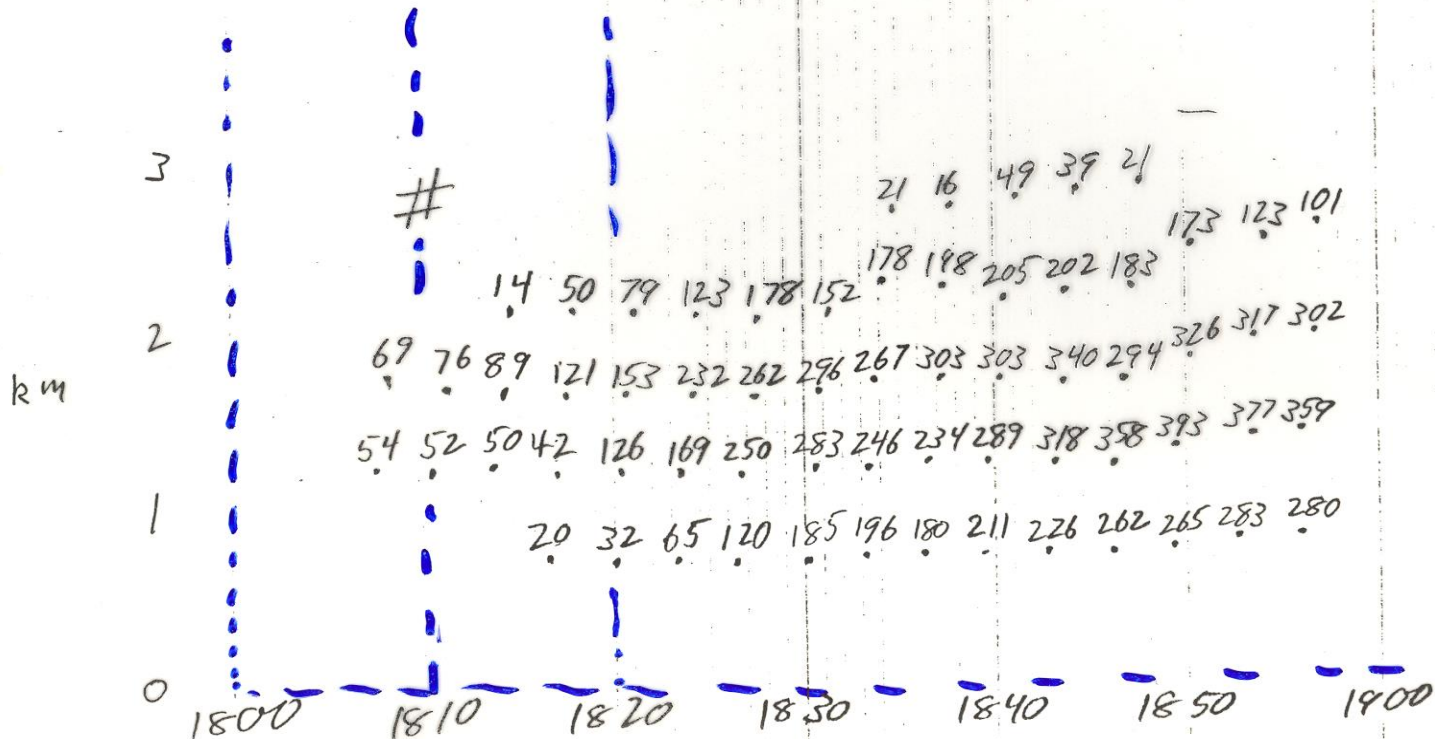 3
21 16 49 39 21
#
173 123 101
178 198 205 202 183
14 50 79 123 178 152
2
326 317 302
69 76 89 121 153 232 262 296 267 303 303 340 294
km
54 52 50 42 126 169 250 283 246 234 289 318 358 393 377 359
1
20 32 65 120 185 196 180 211 226 262 265 283 280
0
1800 1810 1820 1830 1840 1850 1900